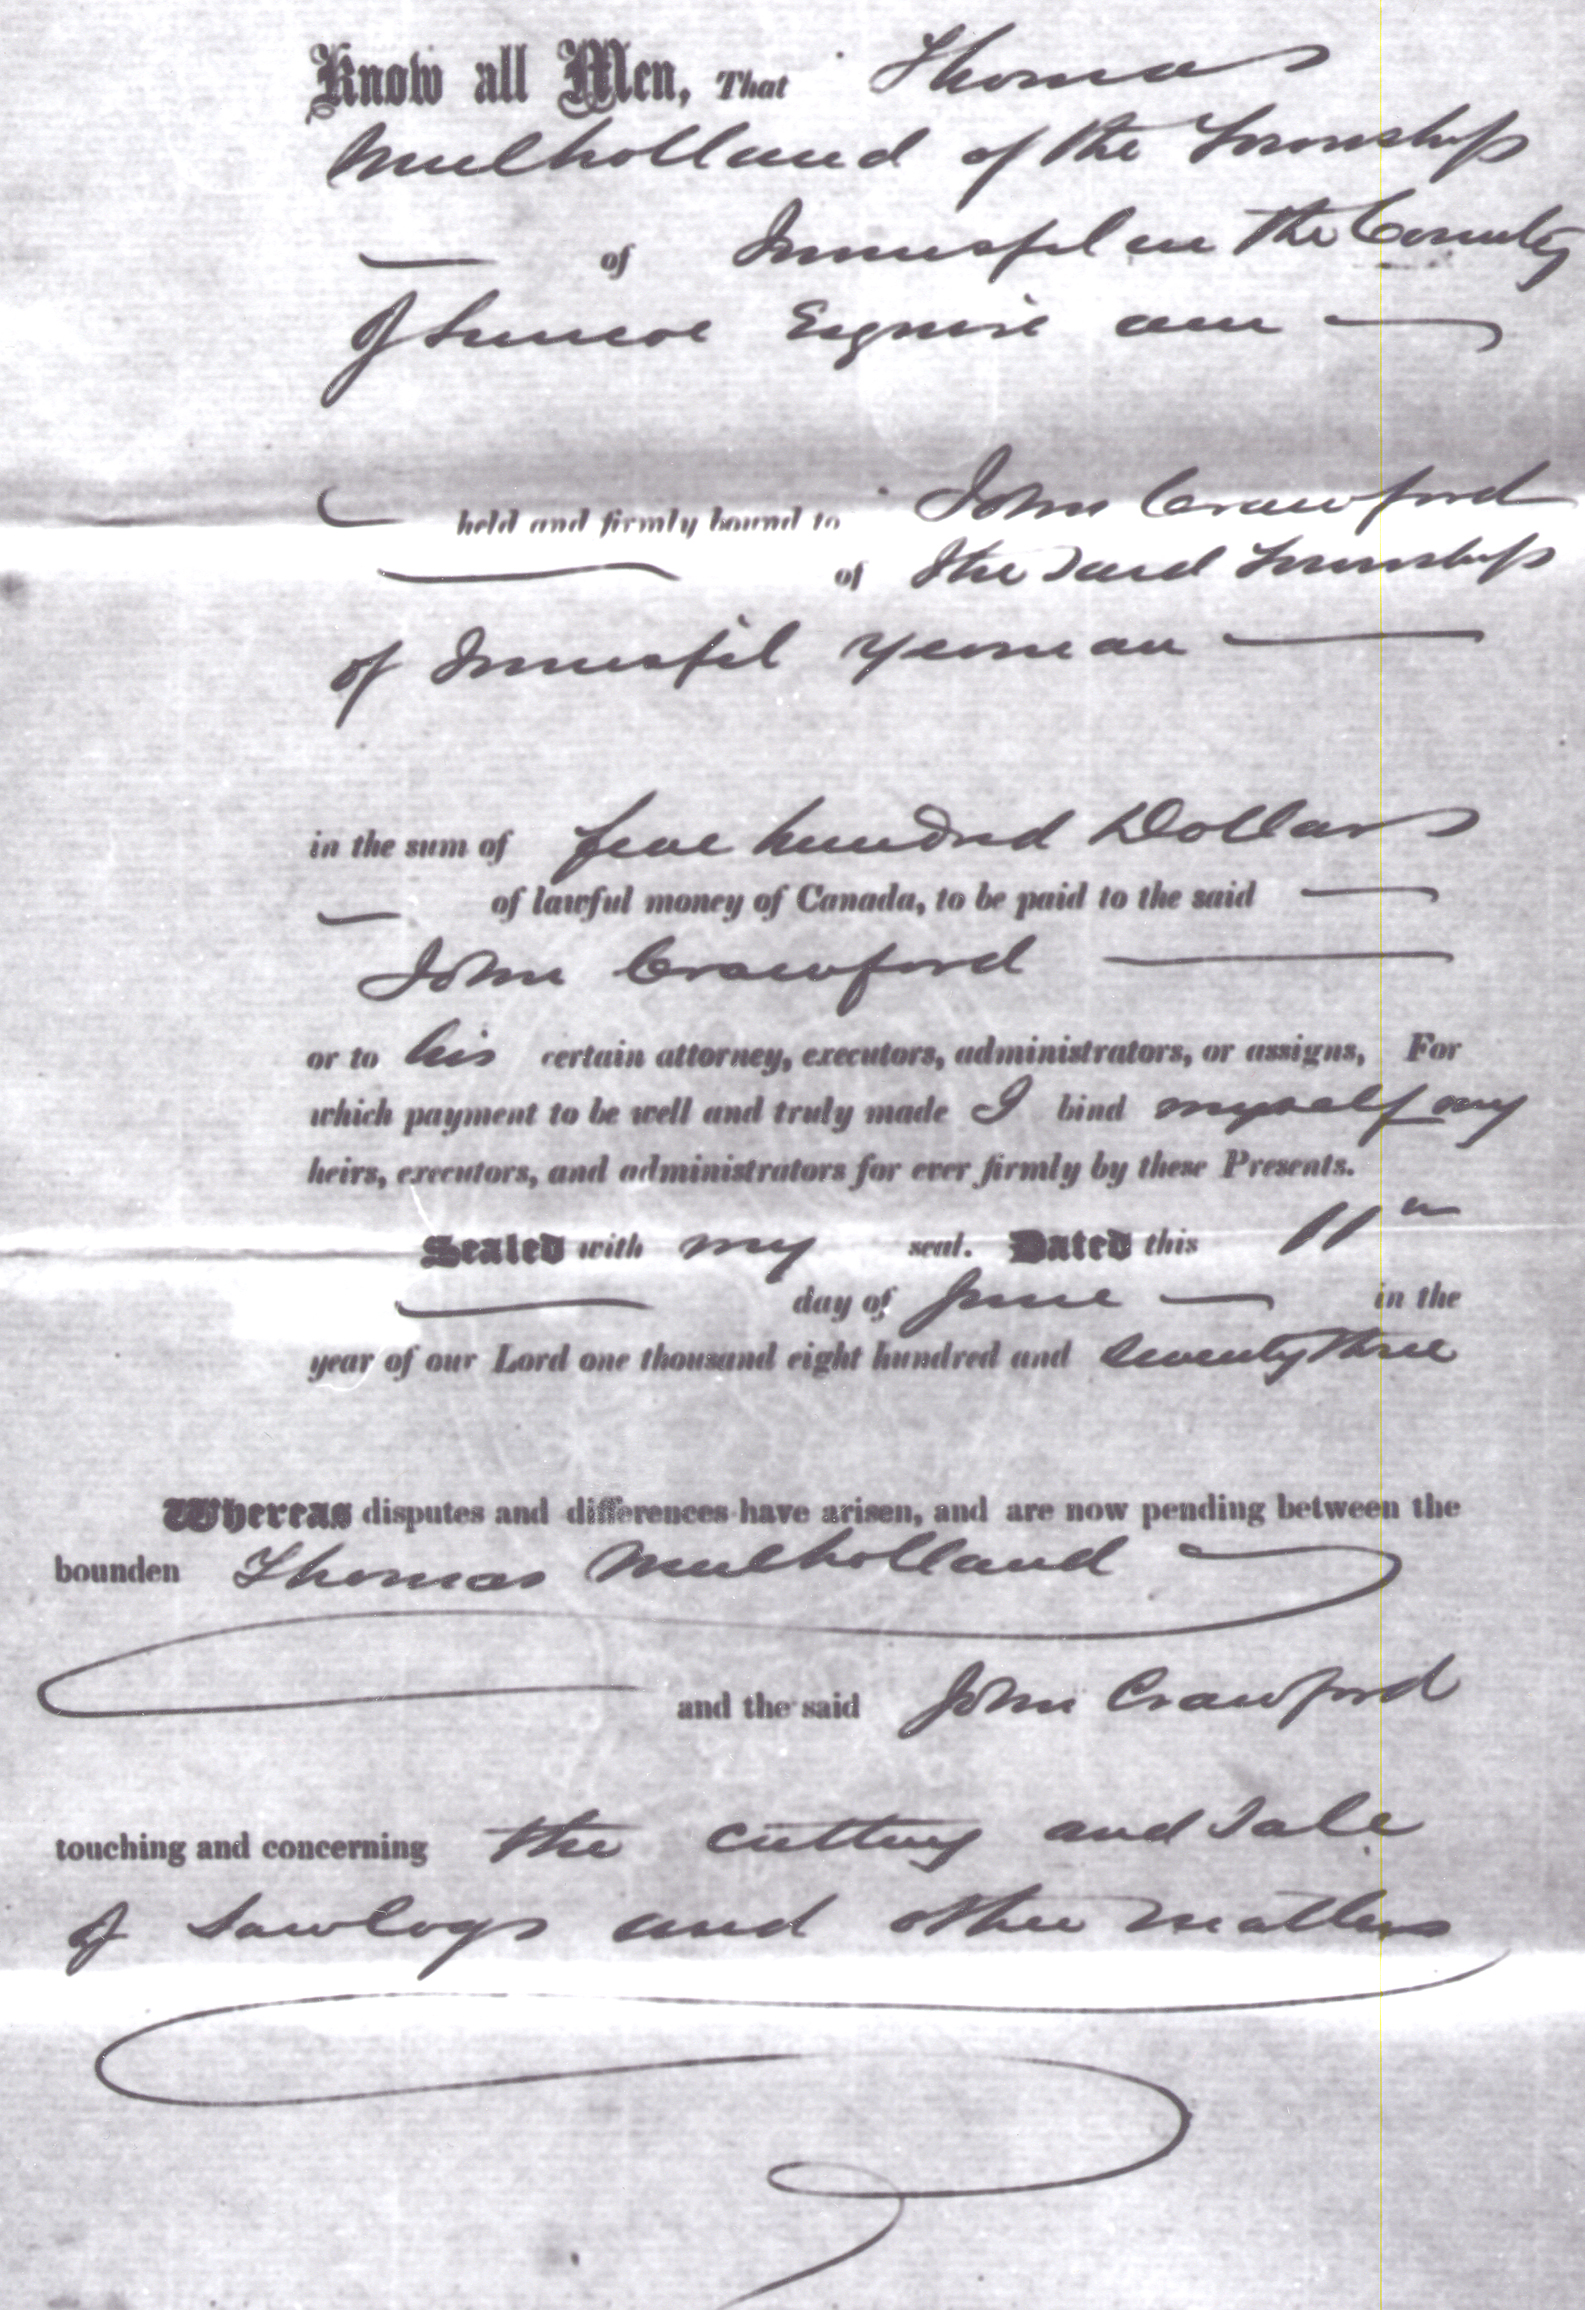 Know all Men, That Thomas
Mulholland of the Township
of Innisfil in the County
of Simcoe Esquire am
held and firmly bound to John Crawford
of the said Township
of Innisfil Yeoman
in the sum of five hundred Dollars
of lawful money of Canada, to be paid to the said
John Crawford
or to his certain attorney, executors, administrators, or assigns, For
which payment to be well and truly made I bind myself my
heirs, executors, and administrators for ever firmly by these Presents.
Sealed with my seal. Dated this 11th
day of June in the
year of our Lord one thousand eight hundred and seventy three
Whereas disputes and differences have arisen, and are now pending between the
bounden Thomas Mulholland
and the said John Crawford
touching and concerning the cutting and Sale
of Sawlogs and other matters